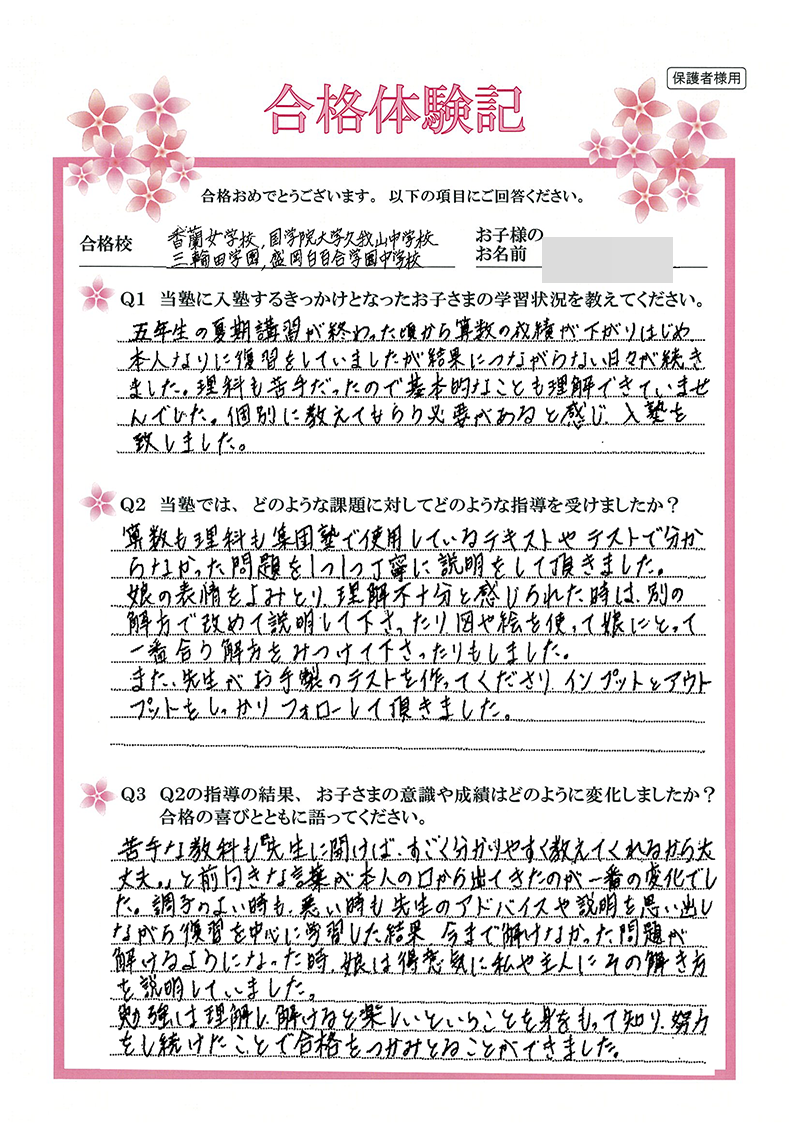 保護者様用
合格体験記
合格おめでとうございます。以下の項目にご回答ください。
合格校 香蘭女学校,国学院大学久我山中学校
三輪田学園,盛岡白百合学園中学校
お子様の
お名前
Q1 当塾に入塾するきっかけとなったお子さまの学習状況を教えてください。
五年生の夏期講習が終わった頃から算数の成績が下がりはじめ、
本人なりに復習をしていましたが結果につながらない日々が続き
ました。理科も苦手だったので基本的なことも理解できていませ
んでした。個別に教えてもらう必要があると感じ、入塾を
致しました。
Q2 当塾では、どのような課題に対してどのような指導を受けましたか？
算数も理科も集団塾で使用しているテキストやテストで分か
らなかった問題を1つ1つ丁寧に説明をして頂きました。
娘の表情をよみとり、理解不十分と感じられた時は、別の
解方で改めて説明して下さったり図や絵を使って娘にとって
一番合う解方をみつけて下さったりもしました。
また、先生がお手製のテストを作ってくださり、インプットとアウト
プットをしっかりフォローして頂きました。
Q3 Q2の指導の結果、お子さまの意識や成績はどのように変化しましたか？
合格の喜びとともに語ってください。
苦手な教科も『先生に聞けば、すごく分かりやすく教えてくれるから大
丈夫。』と前向きな言葉が本人の口から出てきたのが一番の変化でし
た。調子のよい時も、悪い時も先生のアドバイスや説明を思い出し
ながら復習を中心に学習した結果、今まで解けなかった問題が
解けるようになった時、娘は得意気に私や主人にその解き方
を説明していました。
勉強は理解し、解けると楽しいということを身をもって知り、努力
をし続けたことで合格をつかみとることができました。